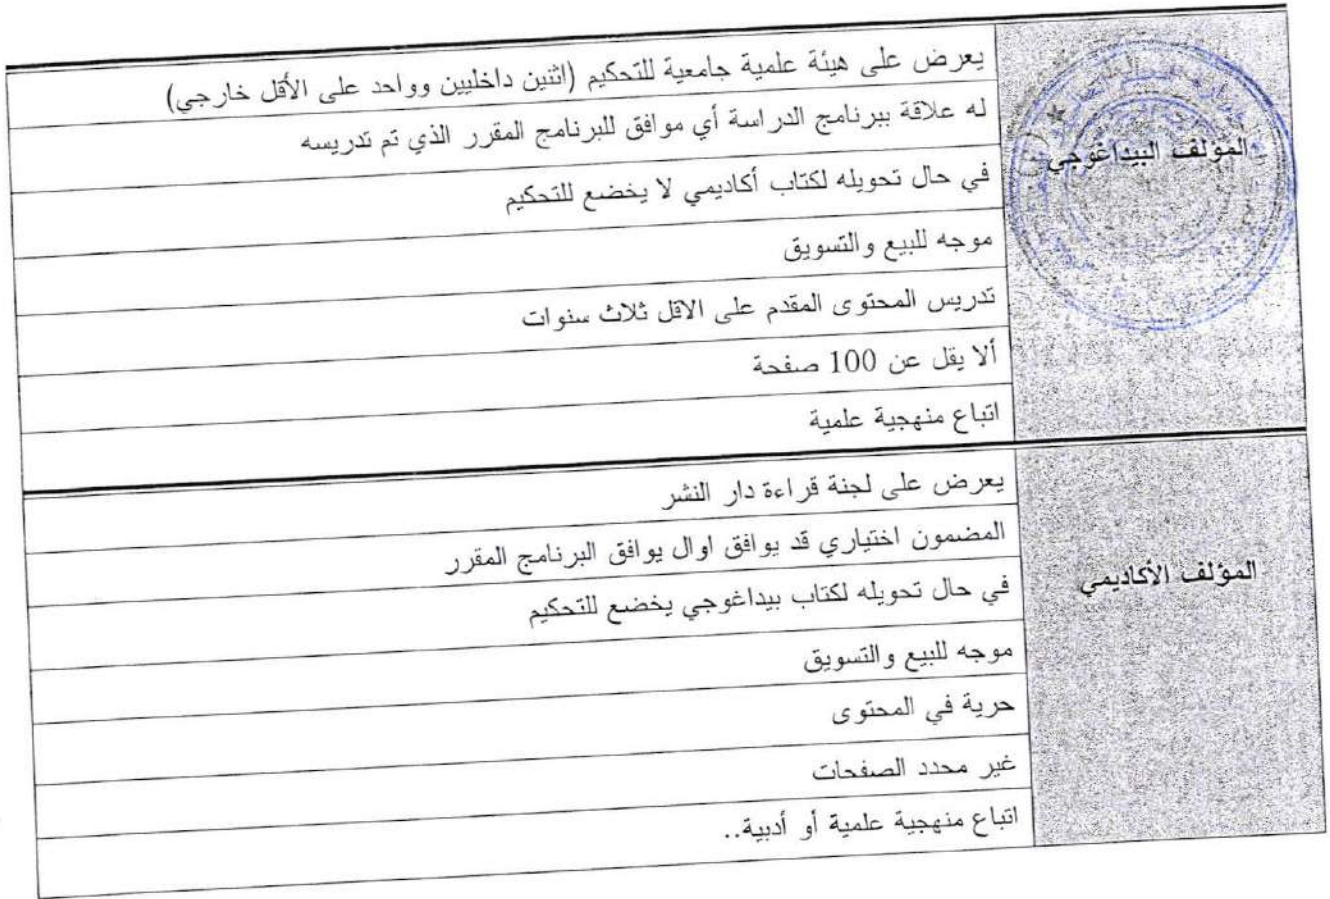 المؤلف البيداغوجي
يعرض على هيئة علمية جامعية للتحكيم (اثنين داخليين وواحد على الأقل خارجي)
له علاقة ببرنامج الدراسة أي موافق للبرنامج المقرر الذي تم تدريسه
في حال تحويله لكتاب أكاديمي لا يخضع للتحكيم
موجه للبيع والتسويق
تدريس المحتوى المقدم على الاقل ثلاث سنوات
ألا يقل عن 100 صفحة
اتباع منهجية علمية
المؤلف الأكاديمي
يعرض على لجنة قراءة دار النشر
المضمون اختياري قد يوافق اوال يوافق البرنامج المقرر
في حال تحويله لكتاب بيداغوجي يخضع للتحكيم
موجه للبيع والتسويق
حرية في المحتوى
غير محدد الصفحات
اتباع منهجية علمية أو أدبية..